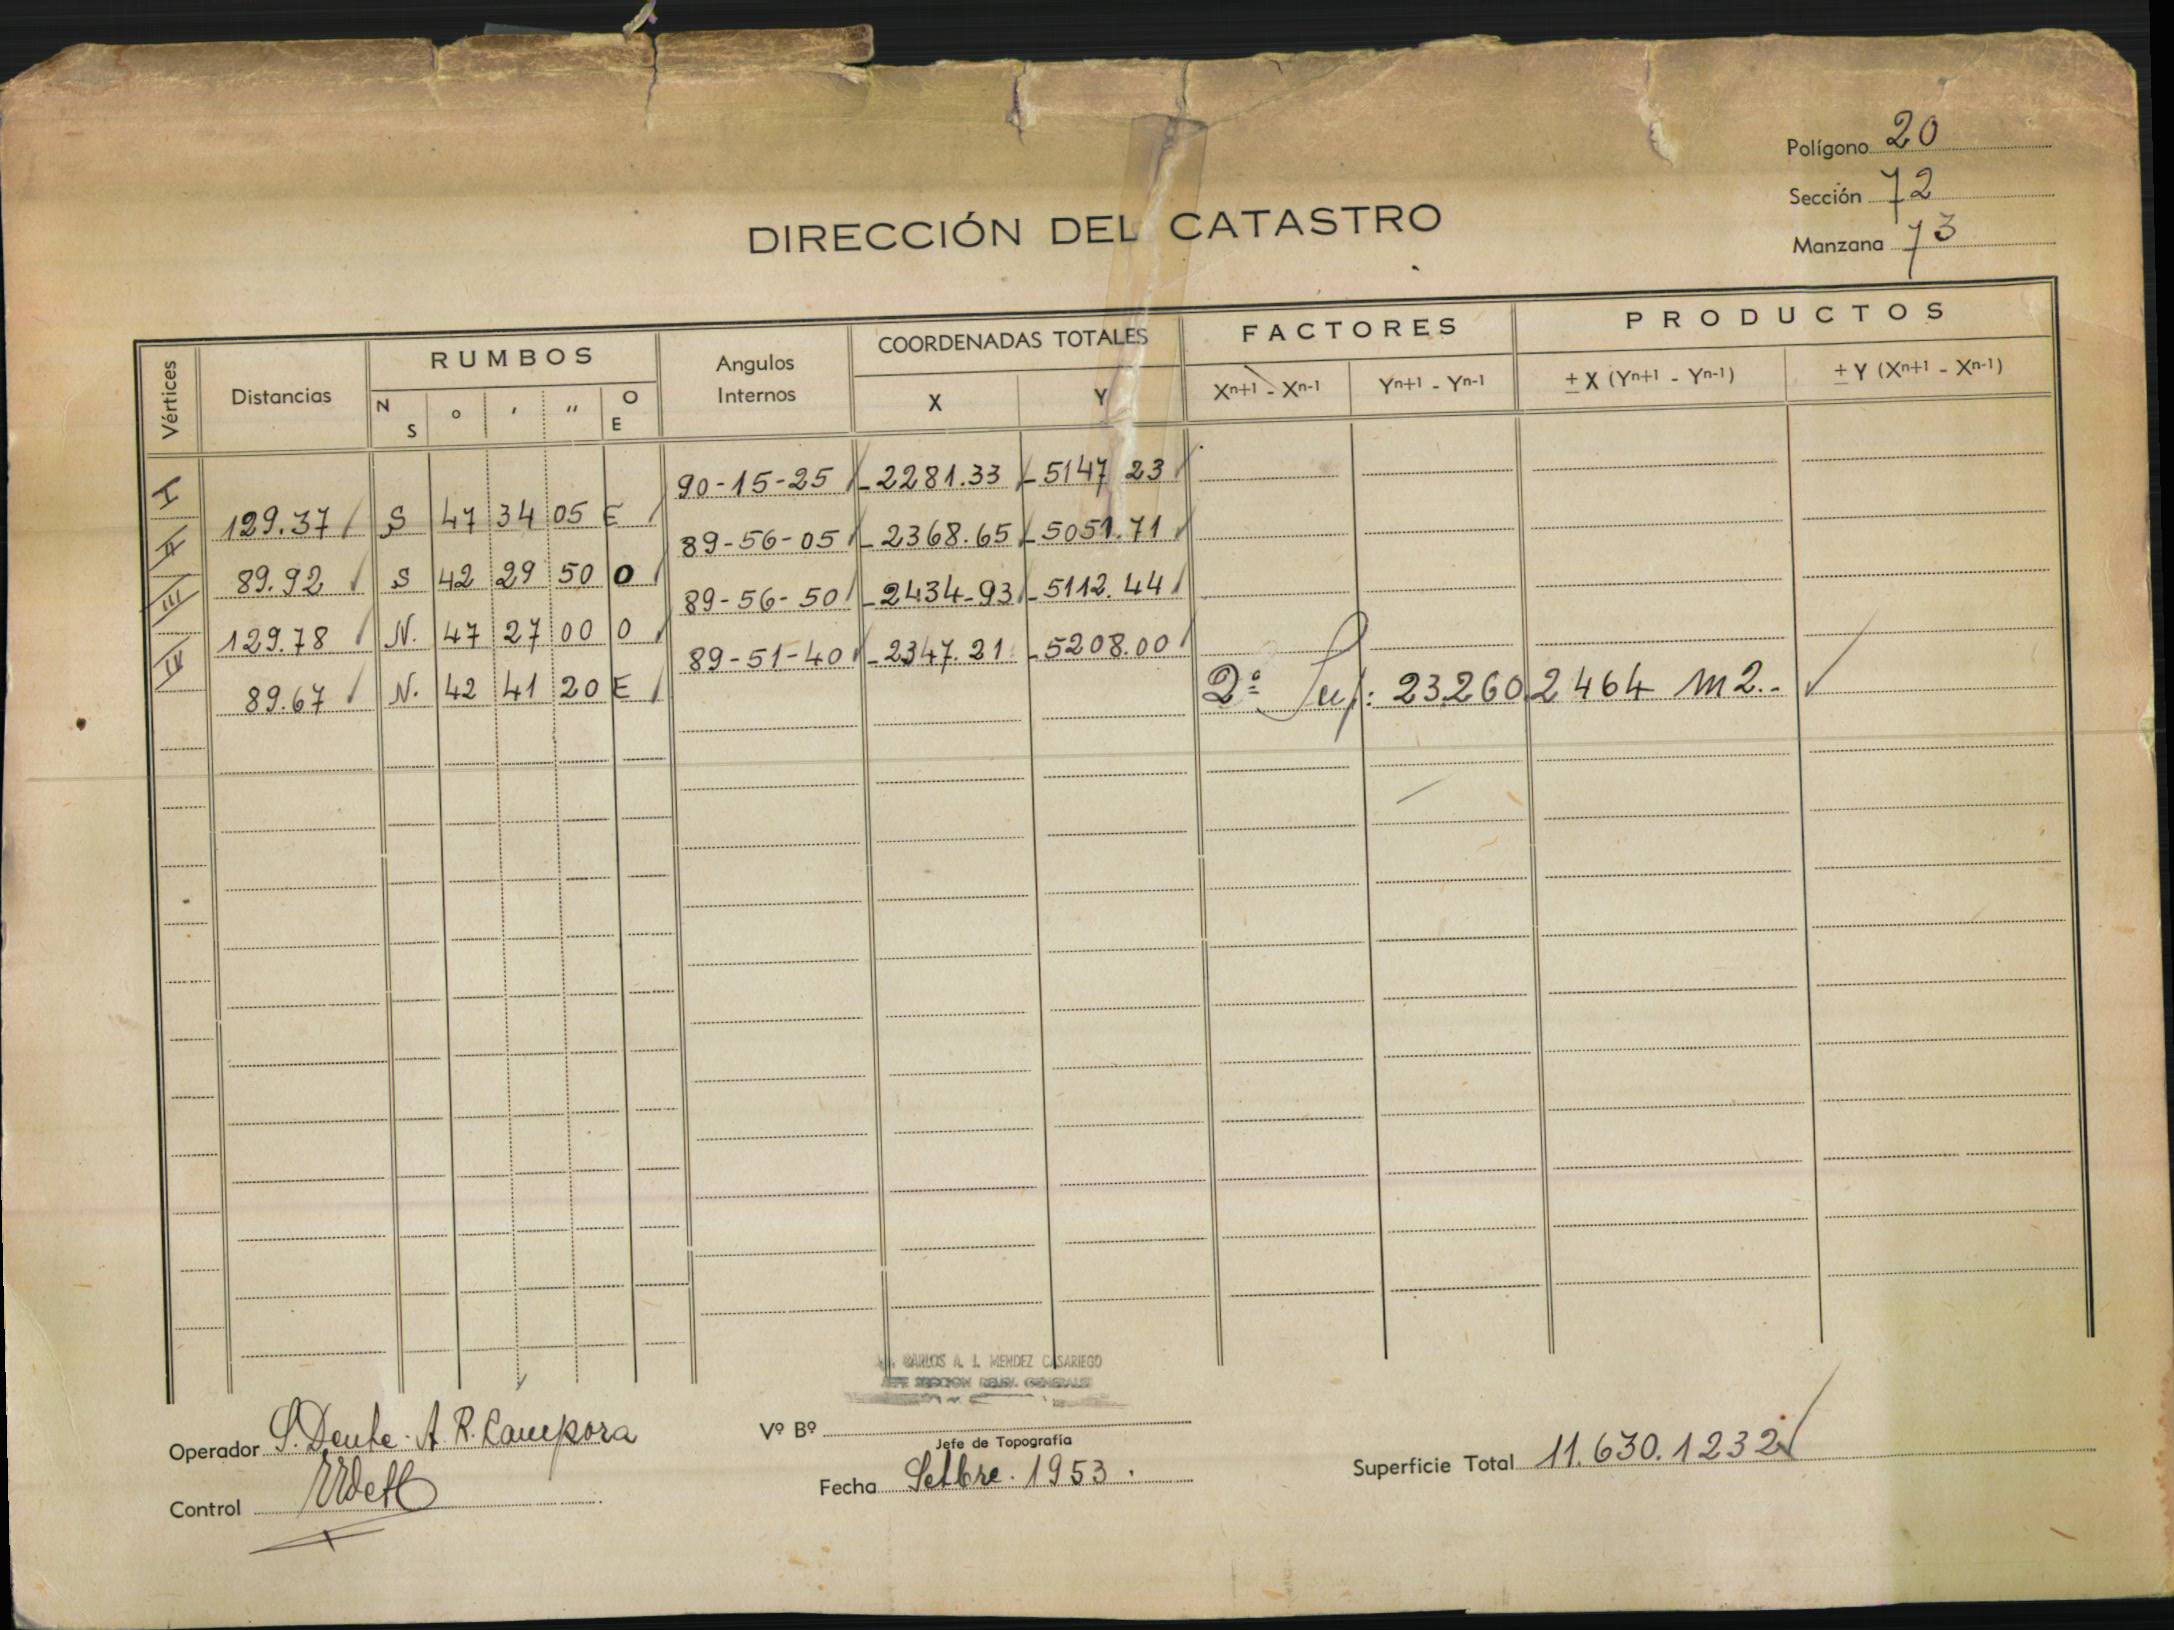 Polígono 20
Sección 72
Manzana 73
DIRECCIÓN DEL CATASTRO
Vértices Distancias RUMBOS Angulos Internos COORDENADAS TOTALES FACTORES PRODUCTOS
N S ° ' " O E X Y Xn+1 - Xn-1 Yn+1 - Yn-1 ± X (Yn+1 - Yn-1) ± Y (Xn+1 - Xn-1)
I 90-15-25 -2281.33 -5147 23
129.37 S 47 34 05 E
II 89-56-05 -2368.65 -5051.71
89.92 S 42 29 50 O
III 89-56-50 -2434-93 -5112.44
129.78 N. 47 27 00 O
IV 89-51-40 -2347.21 -5208.00
89.67 N. 42 41 20 E
2ª Sup: 23.260.2464 m2.-
CARLOS A. I. MENDEZ CASARIEGO
Operador S. Dente - A. R. Campora
Vº Bº
Jefe de Topografía
Control
Fecha Setbre. 1953.
Superficie Total 11.630.1232